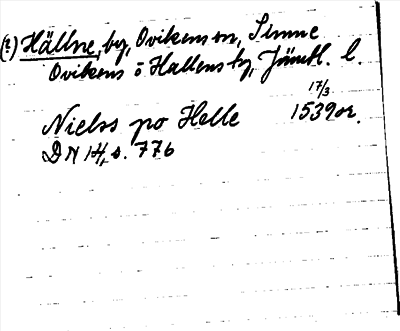 (?) Hällne, by, Ovikens sn, Sunne
Ovikens o Hallens tg, Jämtl. l.
17/3
Nielss po Helle 1539 or.
DN 14, s. 776